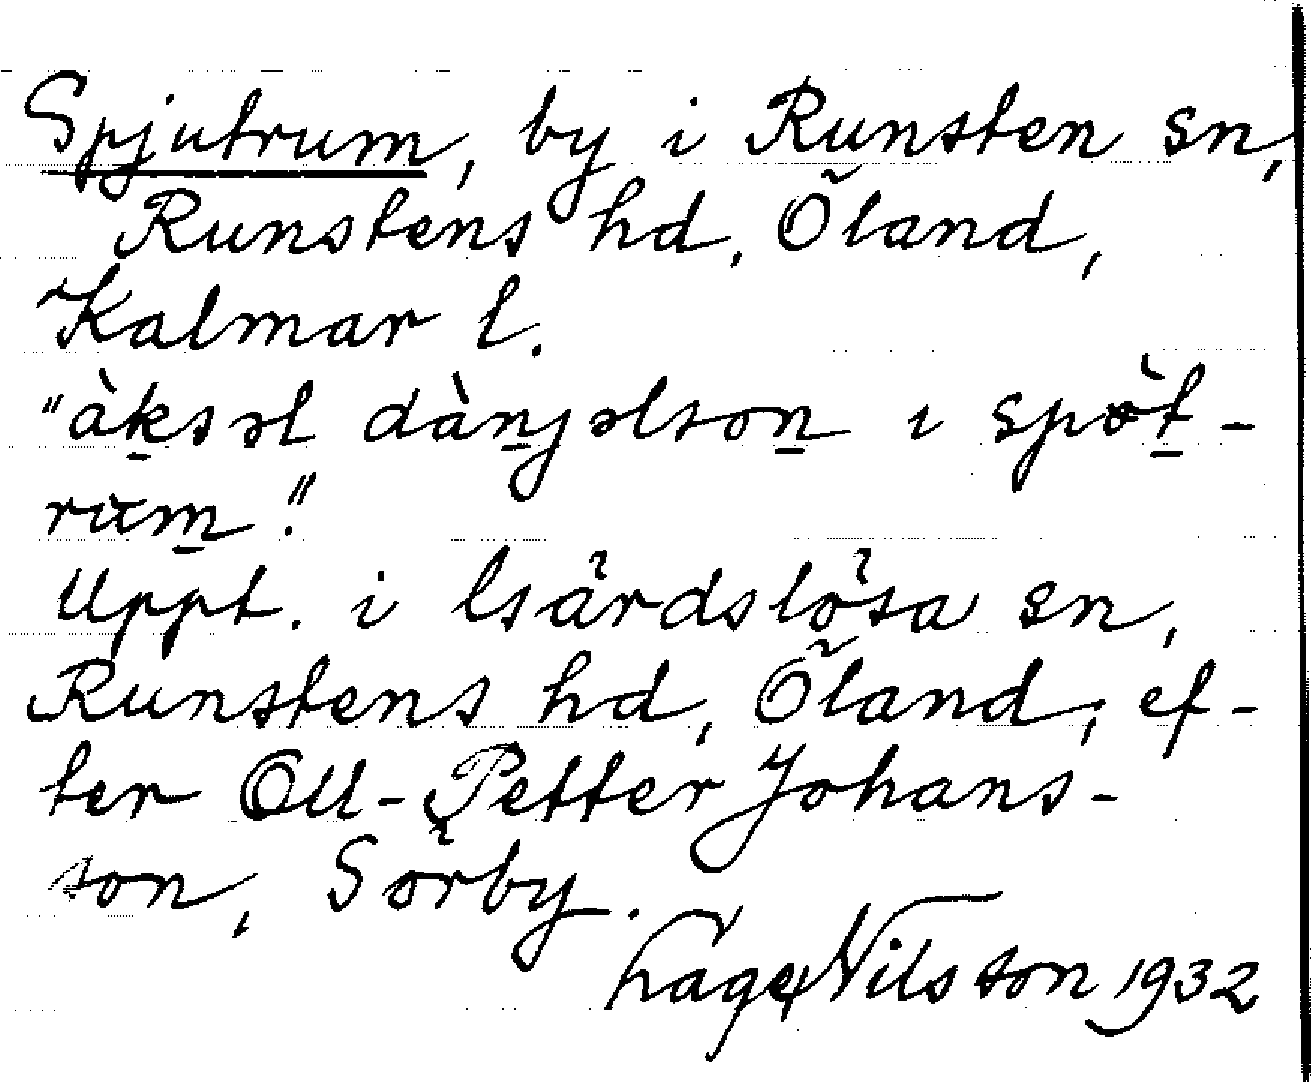 Spjutrum, by i Runsten sn,
Runstens hd, Öland,
Kalmar l.
"àksəl dànjəlson i spø̀t-
rum."
Uppt. i Gårdslösa sn,
Runstens hd, Öland, ef-
ter Oll-Petter Johans-
son, Sörby.
Nilsson 1932